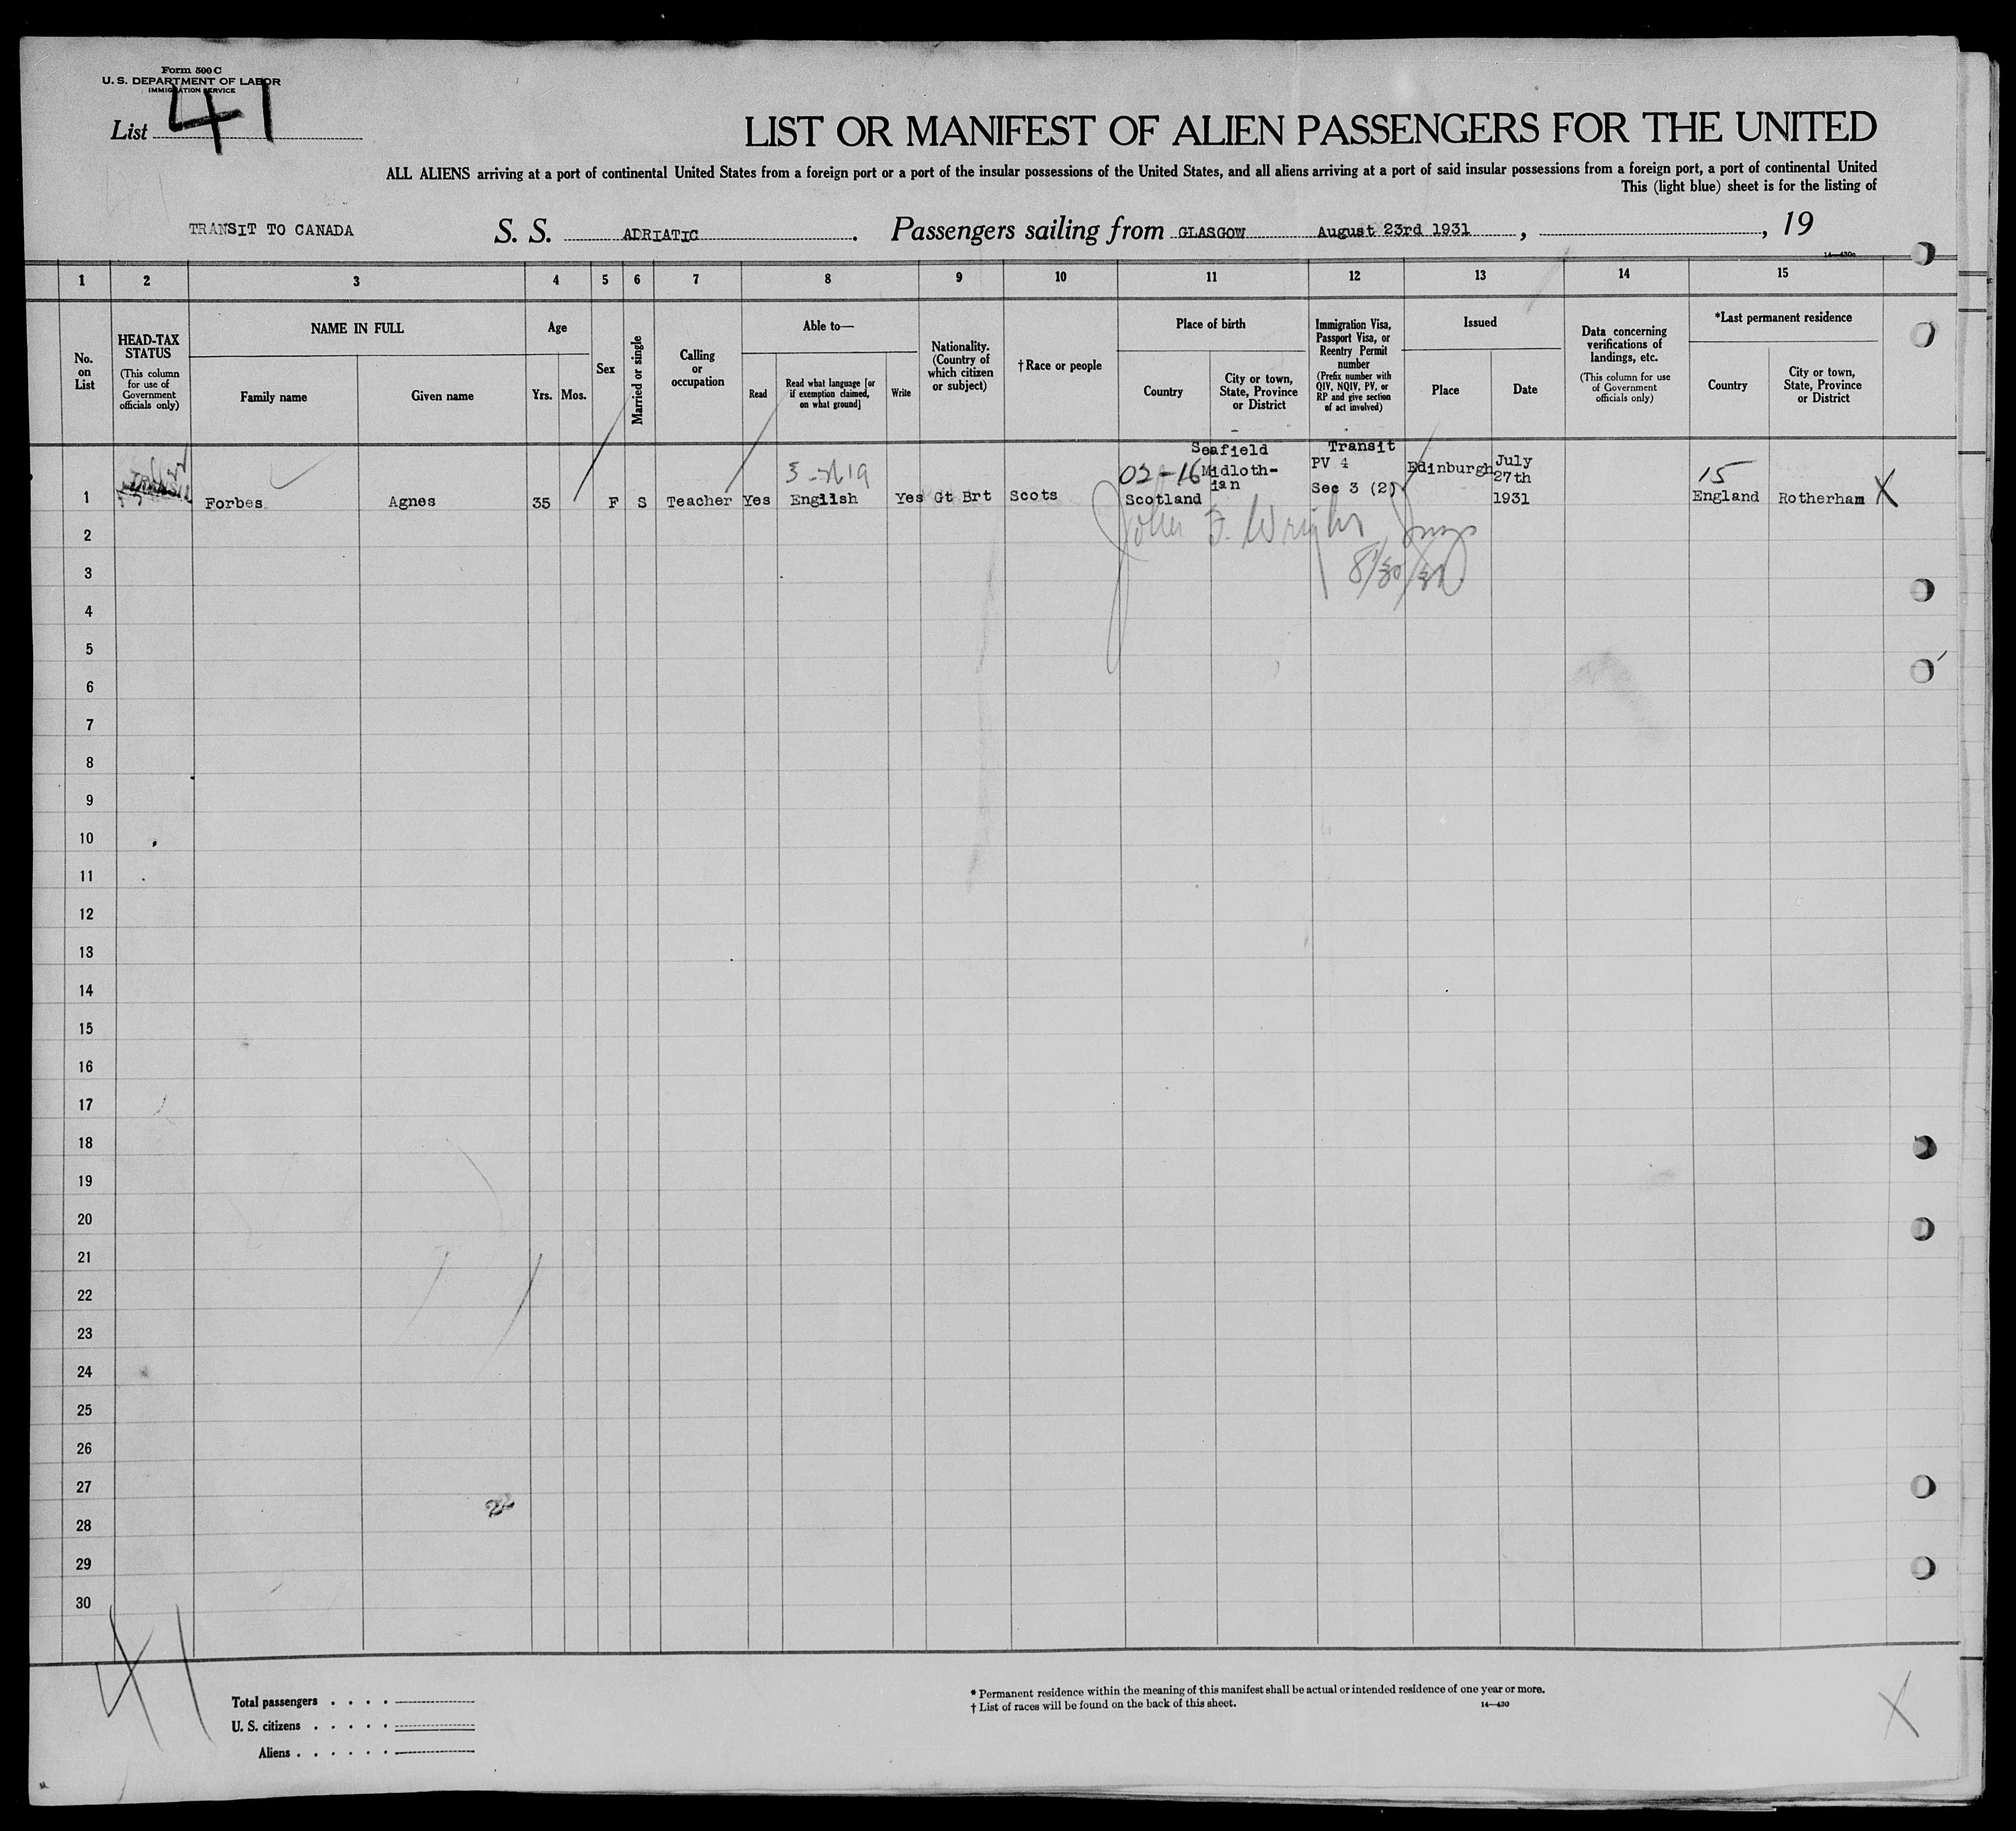 Form 500 C
U. S. DEPARTMENT OF LABOR
IMMIGRATION SERVICE
List 41
LIST OR MANIFEST OF ALIEN PASSENGERS FOR THE UNITED
ALL ALIENS arriving at a port of continental United States from a foreign port or a port of the insular possessions of the United States, and all aliens arriving at a port of said insular possessions from a foreign port, a port of continental United
This (light blue) sheet is for the listing of
TRANSIT TO CANADA S. S. ADRIATIC. Passengers sailing from GLASGOW August 23rd 1931, , 19
14—430c
1 2 3 4 5 6 7 8 9 10 11 12 13 14 15
No. on List
HEAD-TAX STATUS
(This column for use of Government officials only)
NAME IN FULL
Family name
Given name
Age
Yrs. Mos.
Sex
Married or single
Calling or occupation
Able to—
Read
Read what language [or if exemption claimed, on what ground]
Write
Nationality. (Country of which citizen or subject)
† Race or people
Place of birth
Country
City or town, State, Province or District
Immigration Visa, Passport Visa, or Reentry Permit number
(Prefix number with QIV, NQIV, PV, or RP and give section of act involved)
Issued
Place
Date
Data concerning verifications of landings, etc.
(This column for use of Government officials only)
*Last permanent residence
Country
City or town, State, Province or District
Seafield Transit
02-16 Midloth- PV 4 Edinburgh July
ian Sec 3 (2) 27th 15
1 TRANSIT Forbes Agnes 35 F S Teacher Yes English Yes Gt Brt Scots Scotland 1931 England Rotherham X
John F. Wright Insp
8/30/31
2
3
4
5
6
7
8
9
10
11
12
13
14
15
16
17
18
19
20
21
22
23
24
25
26
27
28
29
30
41
Total passengers . . . .
U. S. citizens . . . . .
Aliens . . . . . .
* Permanent residence within the meaning of this manifest shall be actual or intended residence of one year or more.
† List of races will be found on the back of this sheet.
14—430
X